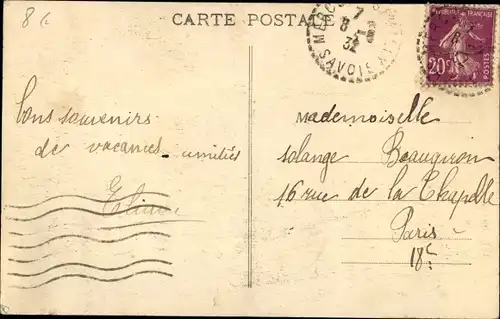 8€
CARTE POSTALE
7
8
32
SAVOIE
REPUBLIQUE FRANÇAISE
20c
POSTES
Bons souvenirs
de vacances. amitiés
Mademoiselle
Solange Beaugiron
16 rue de la Chapelle
Paris
18e